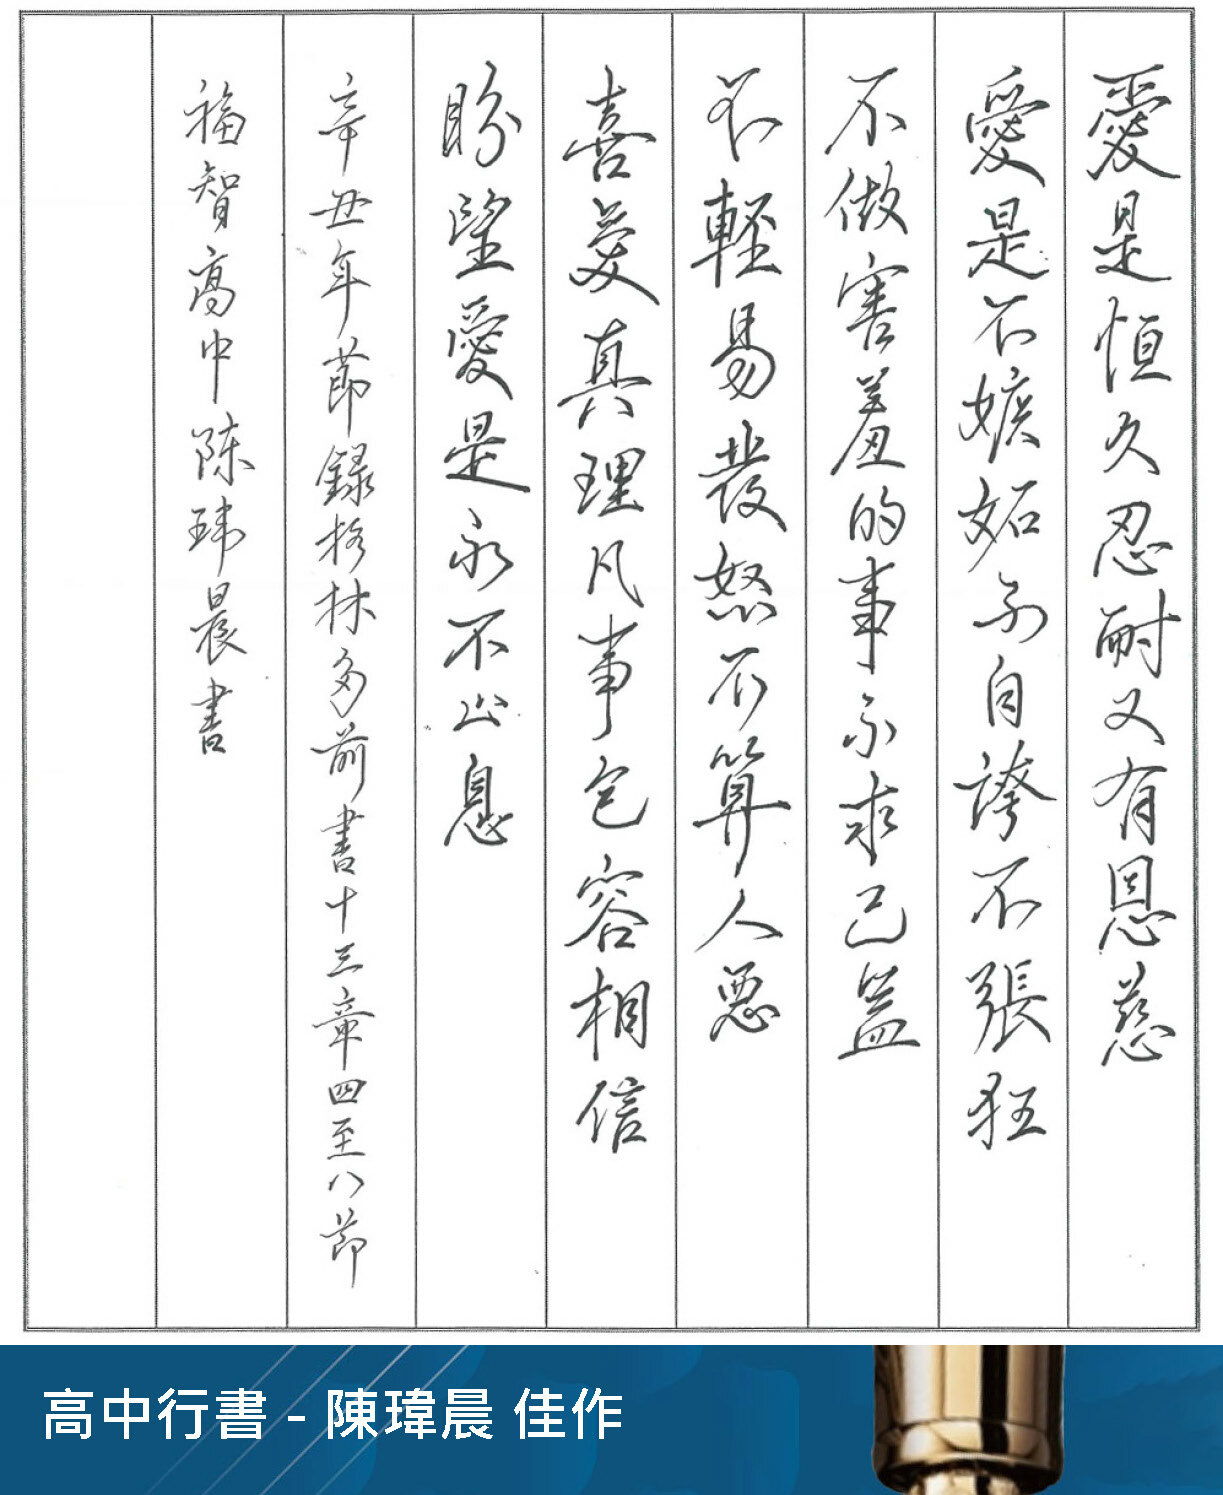 愛是恒久忍耐又有恩慈
愛是不嫉妬不自誇不張狂
不做害羞的事不求己益
不輕易發怒不算人惡
喜愛真理凡事包容相信
盼望愛是永不止息
辛丑年節錄格林多前書十三章四至八節
福智高中陳瑋晨書
高中行書 - 陳瑋晨 佳作